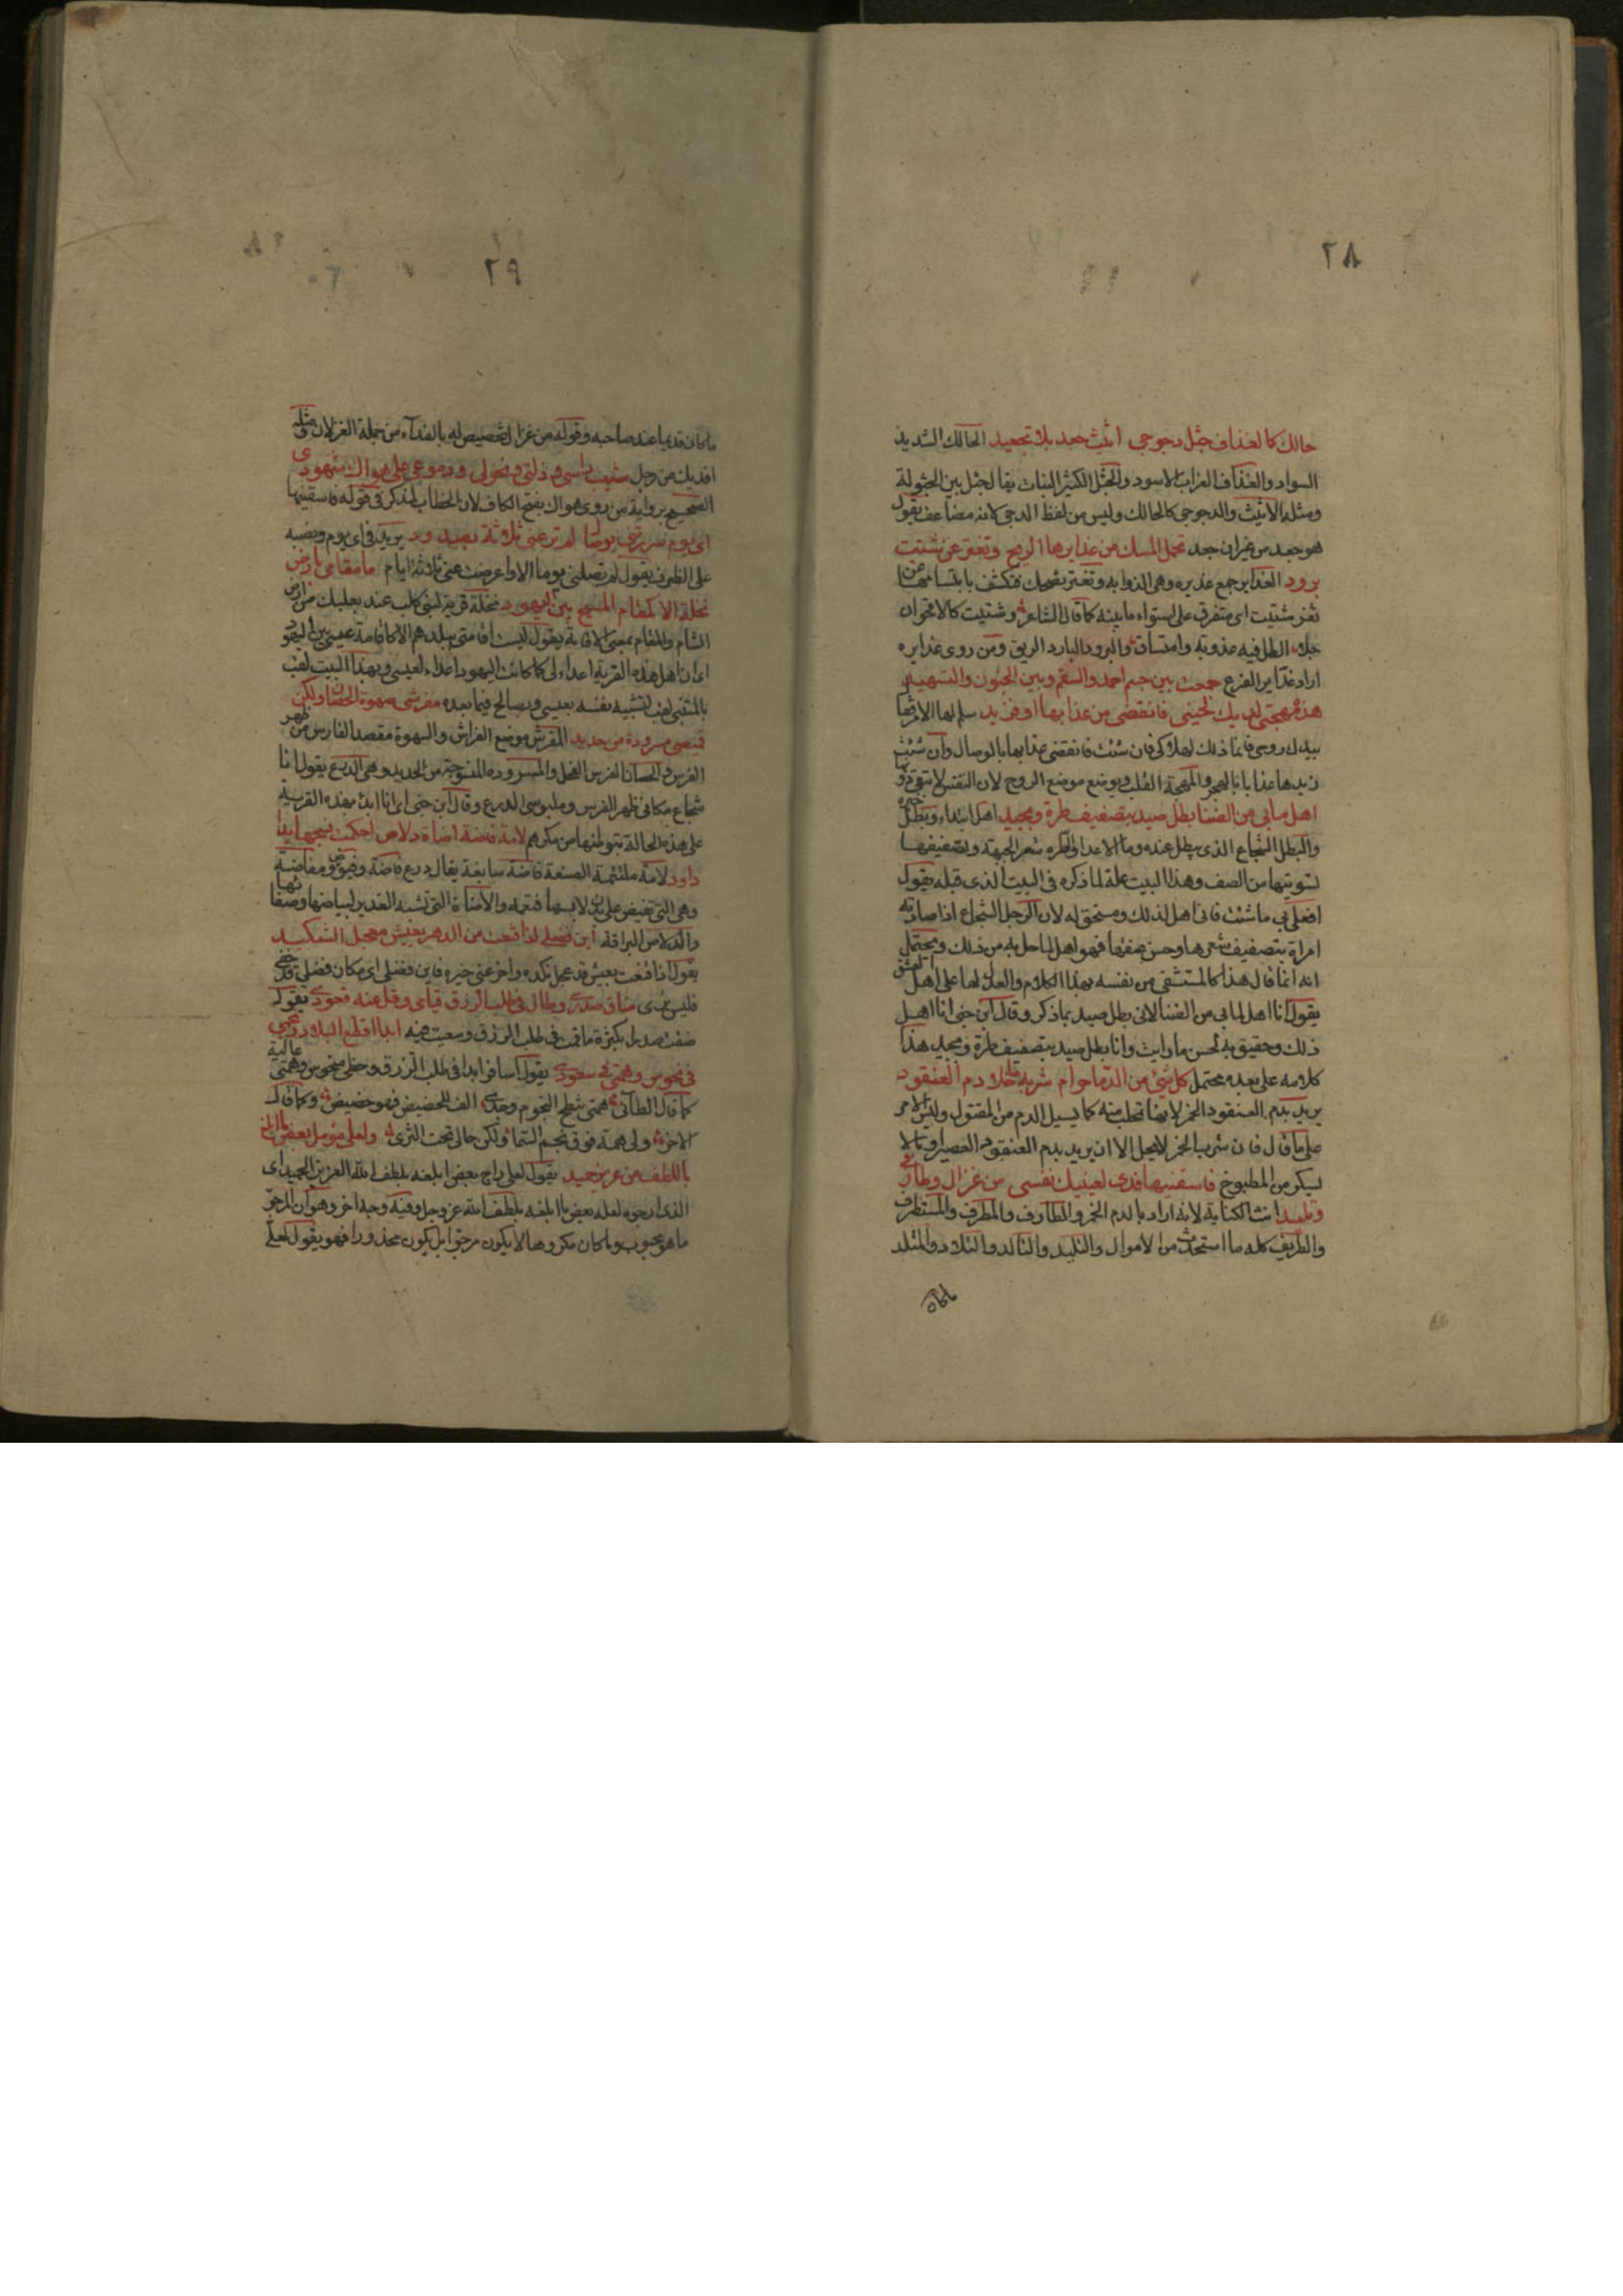 ٢٨
حالك كالغداف جثل دجوجى اثيث جعد بلا تجعيد الحالك الشديد
السواد والغداف الغراب الاسود والجثل الكثير النبات يقال جثل بين الجثولة
ومثله الاثيث والدجوجى كالحالك وليس من لفظ الدجى كانه مضاعف يقول
هو جعد من غير ان جعد تحمل المسك من غدايرها الريح وتفتر عن شتيت
برود الغداير جمع غديره وهى الذوابه وتفتر تضحك فتكشف بابتسامها عن
ثغر شتيت اى متفرق على استواء ما بينه كما قال الشاعر وشتيت كالاقحوان
جلاه الطل فيه عذوبة واتساق والبرود البارد الريق ومن روى غدايره
اراد غداير الفرع جمعت بين جسم احمد والسقم وبين الجفون والتسهيد
هذه مهجتى لديك لحينى فانقصى من عذابها او فزيد سلم لها الامر فيها
بيدك روحى فانما ذلك لهلاكى فان شئت فانقصى عذابها بالوصال وان شئت
زيدها عذابا بالهجر والمهجة القلب ويوضع موضع الروح لان النفس لا تبقى دونها
اهل ما بى من الضنا بطل صيد بتصفيف طرة وبجيد اهل ابتداء وبطل خبره
والبطل الشجاع الذى يبطل عنده دماء الاعدا والطره شعر الجبهة وتصفيفها
تسويتها من الصف وهذا البيت علة لما ذكره فى البيت الذى قبله يقول
افعلى بى ما شئت فانى اهل لذلك ومستحق له لان الرجل الشجاع اذا صادته
امراة بتصفيف شعرها وحسن عنقها فهو اهل لما حل به من ذلك ويحتمل
انه انما قال هذا كالمتشفى من نفسه بهذا الكلام والعذل لها على العشق
يقول انا اهل لما بى من الضنا لانى بطل صيد بما ذكر وقال ابن جنى انا اهل
ذلك وحقيق به لحسن ما رايت وانا بطل صيد بتصفيف طرة وبجيد هذا
كلامه على بعده محتمل كل شئ من الدما حرام شربه خلا دم العنقود
يريد بدم العنقود الخمر لانها تحلب منه كما يسيل الدم من المقتول وليس الامر
على ما قال فان شرب الخمر لا يحل الا ان يريد بدم العنقود العصير او ما لا
يسكر من المطبوخ فاسقنيها فدى لعينيك نفسى من غزال وطارفى
وتليدى انث الكناية لانه اراد بالدم الخمر والطارف والمطرف والمستطرف
والطريف كله ما استحدث من الاموال والتليد والتالد والتلاد والمتلد
ما كان
٢٩
ما كان قديما عند صاحبه وقوله من غزال تخصيص له بالفداء من جملة الغزلان ومثله
افديك من رجل شيب راسى وذلتى ونحولى ودموعى على هواك شهودى
الصحيح رواية من روى هواك بفتح الكاف لان الخطاب لمذكر فى قوله فاسقنيها
اى يوم سررتنى بوصال لم ترعنى ثلاثة بصدود يريد فى اى يوم ونصبه
على الظرف يقول لم تصلنى يوما الا واعرضت عنى ثلاثة ايام ما مقامى بارض
نخلة الا كمقام المسيح بين اليهود نخلة قرية لبنى كلب عند بعلبك من ارض
الشام والمقام بمعنى الاقامة يقول ليست اقامتى ببلدهم الا كاقامة عيسى بين اليهود
اى ان اهل هذه القرية اعداء لى كما كانت اليهود اعداء لعيسى وبهذا البيت لقب
بالمتنبى لهذا لتشبيه نفسه بعيسى وبصالح فيما بعده مفرشى صهوة الحصان ولكن
قميصى مسرودة من حديد المفرش موضع الفراش والصهوة مقعد الفارس من ظهر
الفرس والحصان الفرس الفحل والمسرودة المنسوجة من الحديد وهى الدرع يقول انا
شجاع مكانى ظهر الفرس وملبوسى الدرع وقال ابن جنى اى انا ابدا بهذه القرية
على هذه الحالة تيقظا منها من مكرهم لامة فاضة اضاة دلاص احكمت نسجها يدا
داود لامة ملتئمة الصنعة فاضة سابغة يقال درع فاضة وفيوض ومفاضة
وهى التى تفيض على بدن لابسها فتعمه والاضاة التى تشبه الغدير لبياضها وصفائها
والدلاص البراقة اين فضلى اذا قنعت من الدهر بعيش معجل التنكيد
يقول اذا قنعت بعيش قد عجل نكده واخر عنى خيره فاين فضلى اى مكان فضلى قد خفى
فليس يرى ضاق صدرى وطال فى طلب الرزق قيامى وقل عنه قعودى يقول
ضقت صدرا بكثرة ما قمت فى طلب الرزق وسعيت فيه ابدا اقطع البلاد ونجمى
فى نحوس وهمتى فى سعود يقول اسافر ابدا فى طلب الرزق وحظى منحوس وهمتى عالية
كما قال الطائى همتى تنطح النجوم وجدى الف للحضيض فهو حضيض وكما قال
الاخر ولى همة فوق نجم السما ولكن حالى تحت الثرى ولعلى مؤمل بعض ما ابلغ
باللطف من عزيز حميد يقول لعلى راج بعض ما ابلغه بلطف الله العزيز الحميد اى
الذى ارجوه لعله بعض ما ابلغه بلطف الله عز وجل وفيه وجه اخر وهو ان المرجو
ما هو محبوب وما كان مكروها لا يكون مرجوا بل يكون محذورا فهو يقول لعلى